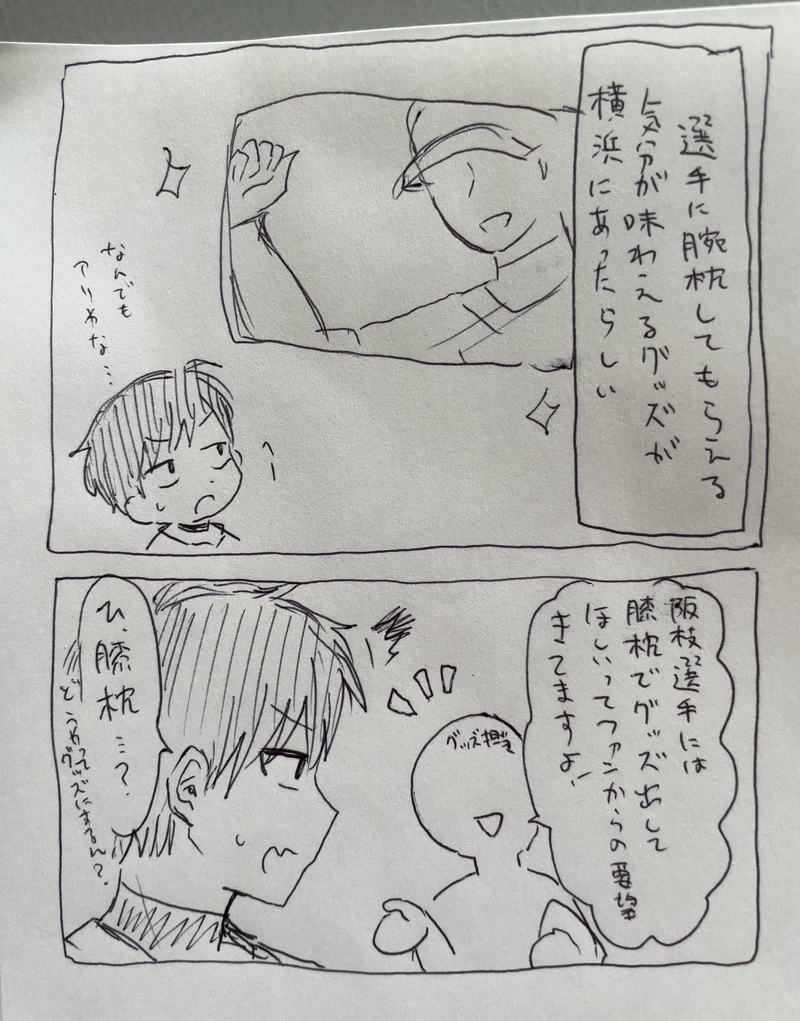 選手に腕枕してもらえる
気分が味わえるグッズが
横浜にあったらしい
なんでも
アリやな…
阪枝選手には
膝枕でグッズ出して
ほしいってファンからの要望
きてますよ！
グッズ担当
ひ、膝枕…？
どうやって
グッズにするん？